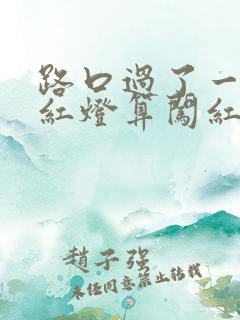 路口過了一
紅燈算闖紅
趙子强
未任同意禁止转载